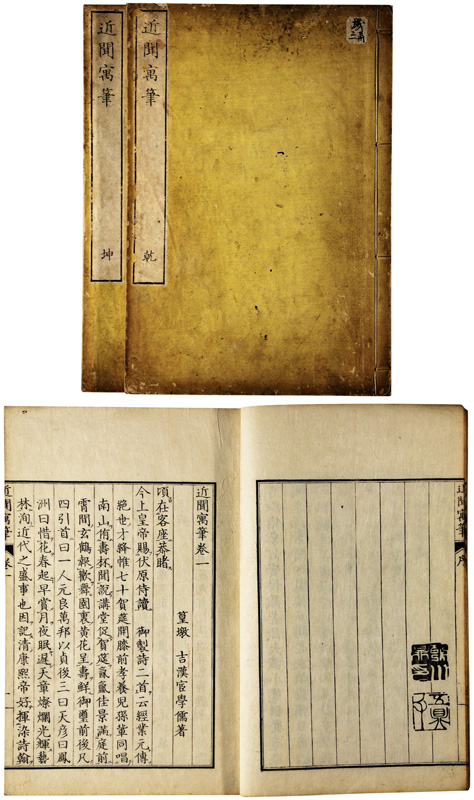 近聞寓筆
坤
近聞寓筆
乾
近聞寓筆
序
近聞寓筆卷一
篁墩 吉漢宦學儒著
頃在客座恭睹
今上皇帝賜伏原侍讀 御製詩二首云經業元傳
絶世才縡帷七十賀筵開膝前孝養兒孫輩同唱
南山侑壽杯聞說講堂促賀筵龢龢佳景滿庭前
霄間玄鶴報歡舞園裏黃花呈壽鮮御璽前後凡
四引首曰一人元良萬邦以貞後三曰天彦曰鳳
洲曰惜花春起早賞月夜眠遲天章燦爛光輝藝
林洵近代之盛事也因記清康熙帝好揮染詩翰
近聞寓筆
卷一
一